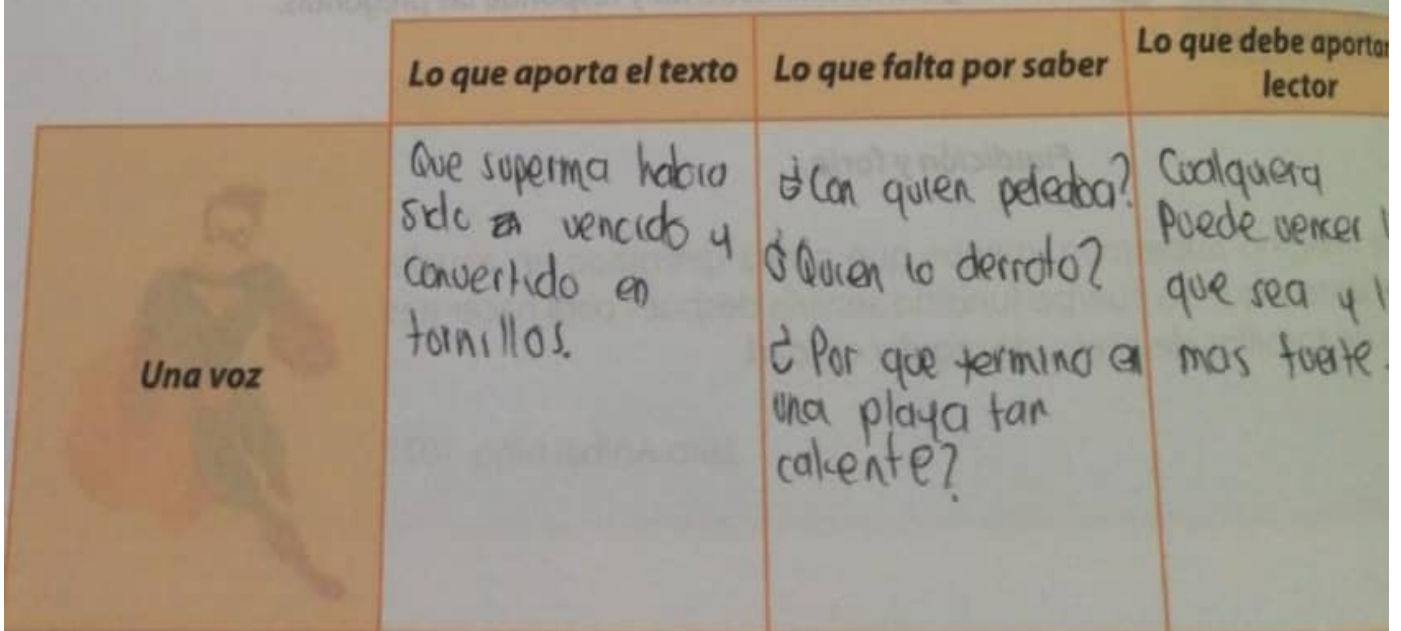 Lo que aporta el texto
Lo que falta por saber
Lo que debe aportar
lector
Una voz
Que superma habia
sido vencido y
convertido en
tornillos.
¿Con quien peleaba?
¿Quien lo derroto?
¿Por que termino en
una playa tan
caliente?
Cualquera
Puede vencer
que sea y
mas fuerte.